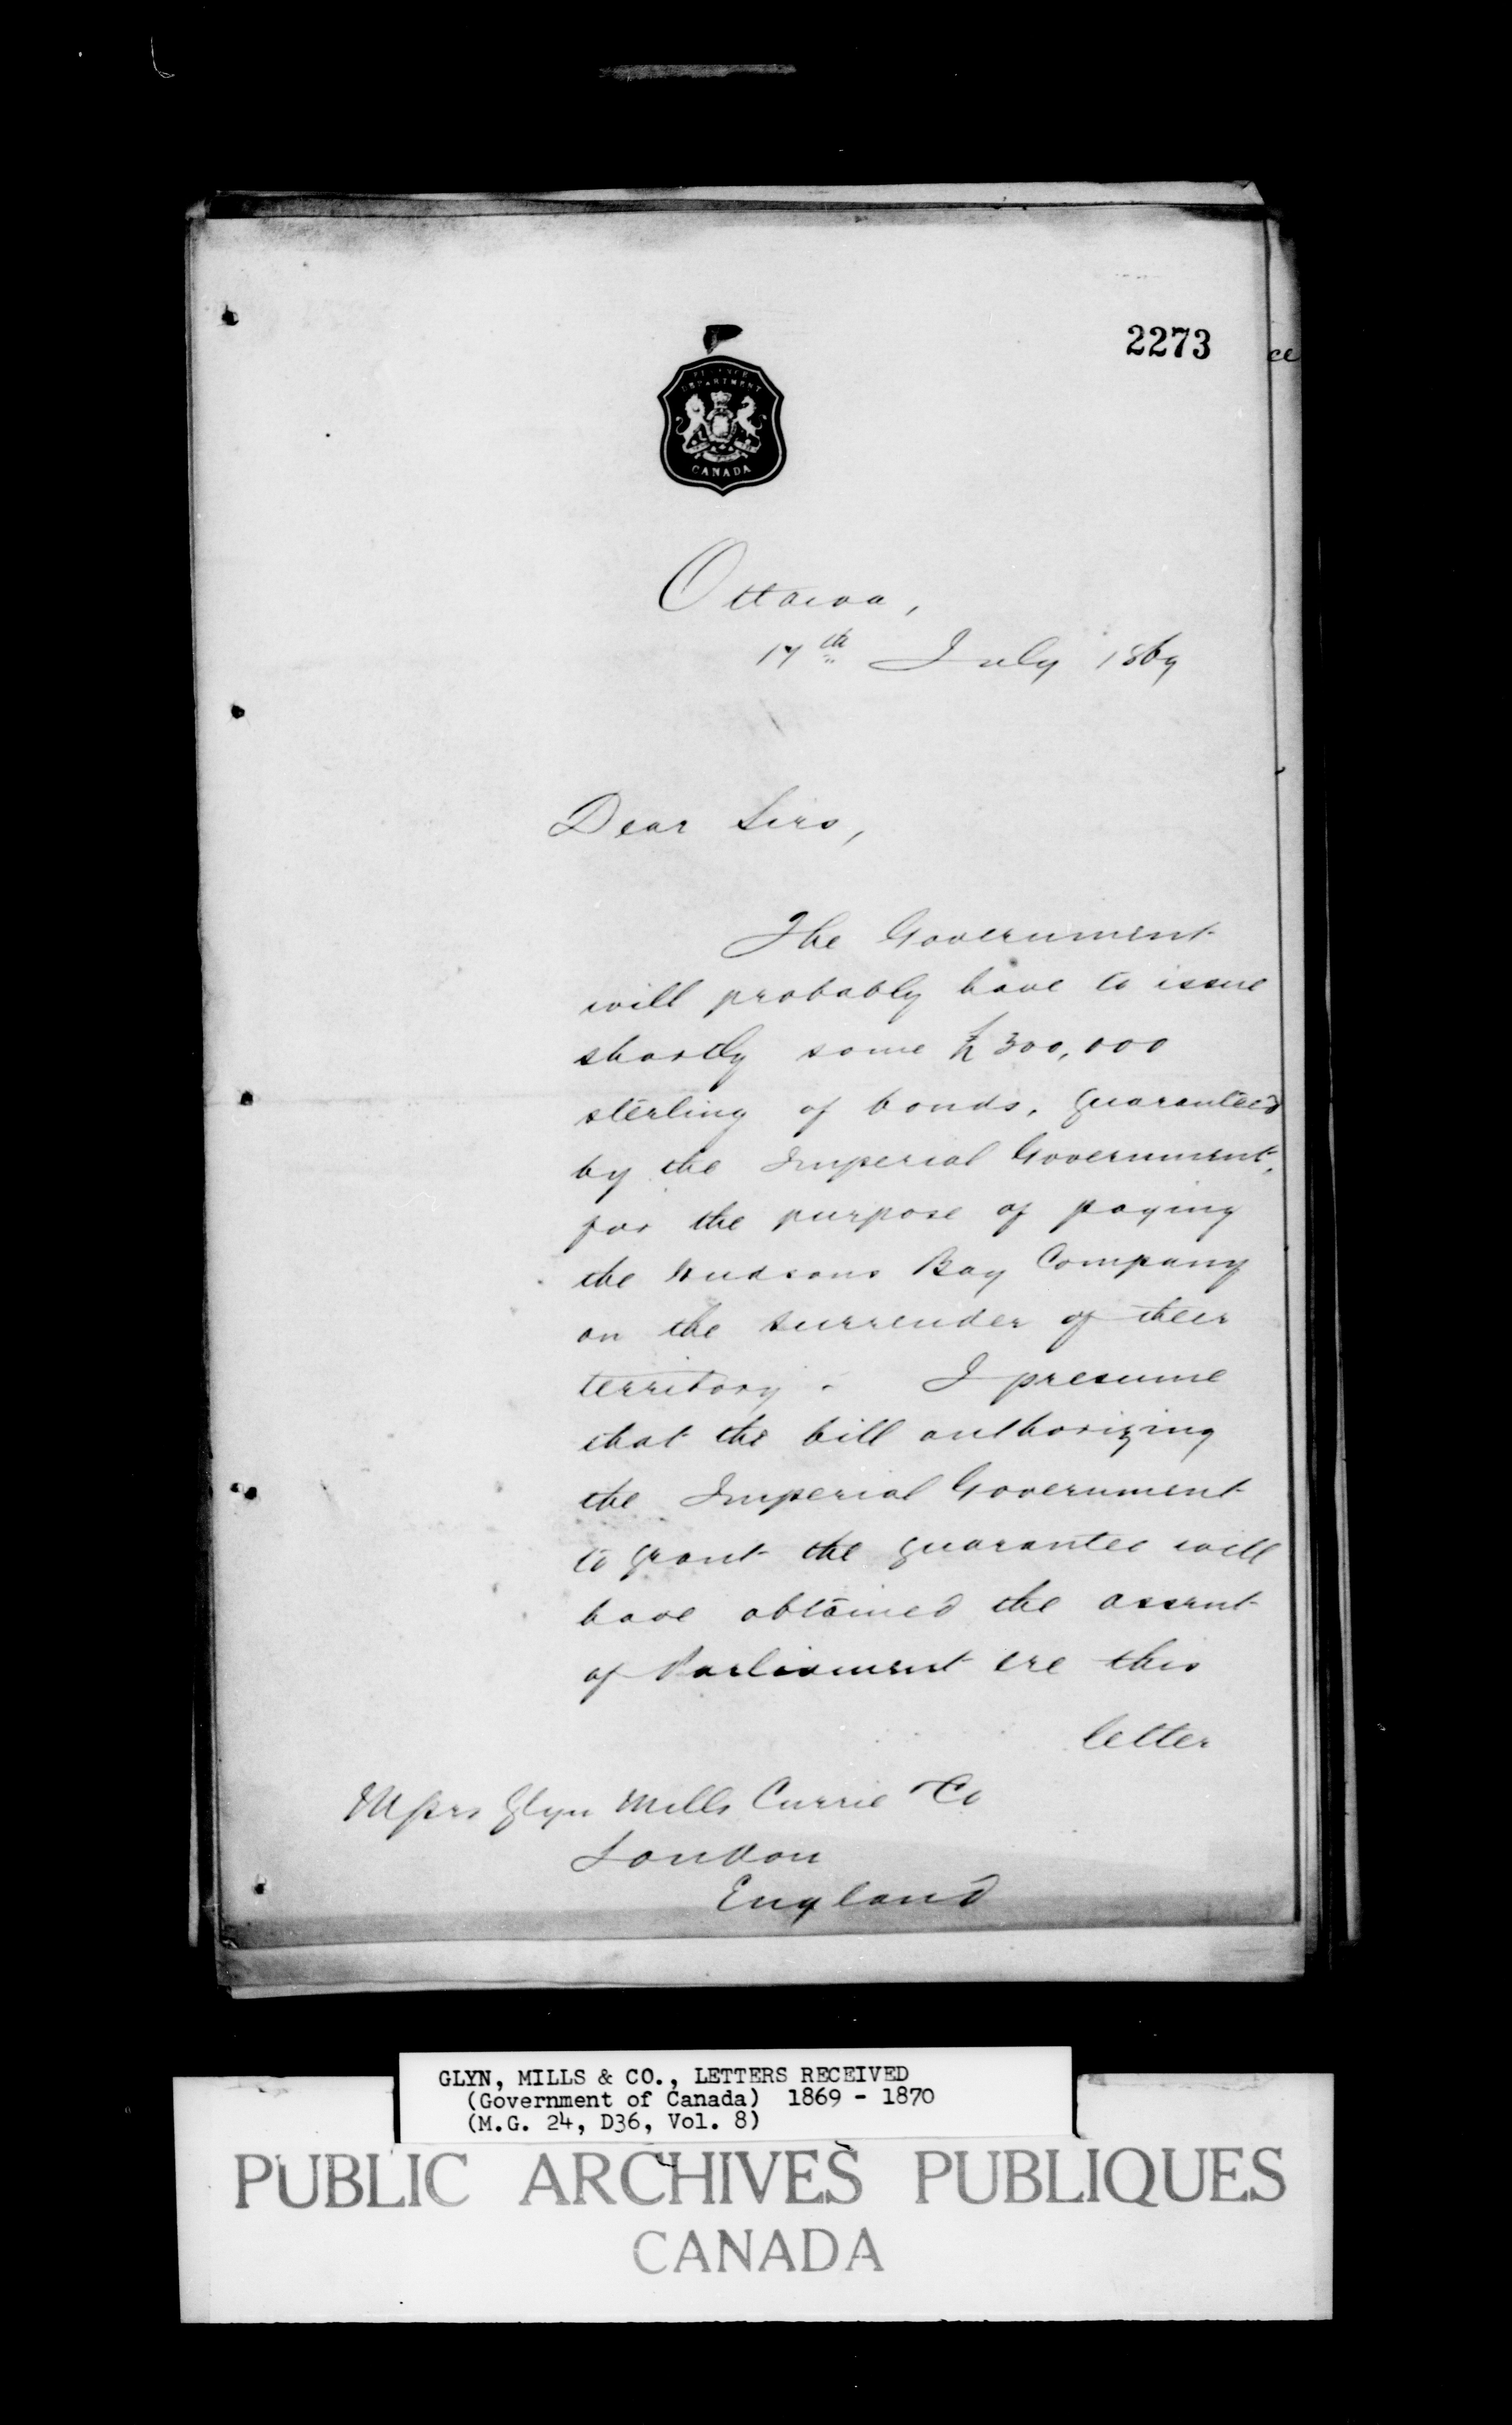 2273
FINANCE
DEPARTMENT
CANADA
Ottawa,
17th July 1869
Dear Sirs,
The Government
will probably have to issue
shortly some £300,000
sterling of bonds, guaranteed
by the Imperial Government,
for the purpose of paying
the Hudsons Bay Company
on the surrender of their
territory. I presume
that the bill authorizing
the Imperial Government
to grant the guarantee will
have obtained the assent
of Parliament ere this
letter
Messrs Glyn Mills Currie & Co
London
England
GLYN, MILLS & CO., LETTERS RECEIVED
(Government of Canada) 1869 - 1870
(M.G. 24, D36, Vol. 8)
PUBLIC ARCHIVES PUBLIQUES
CANADA